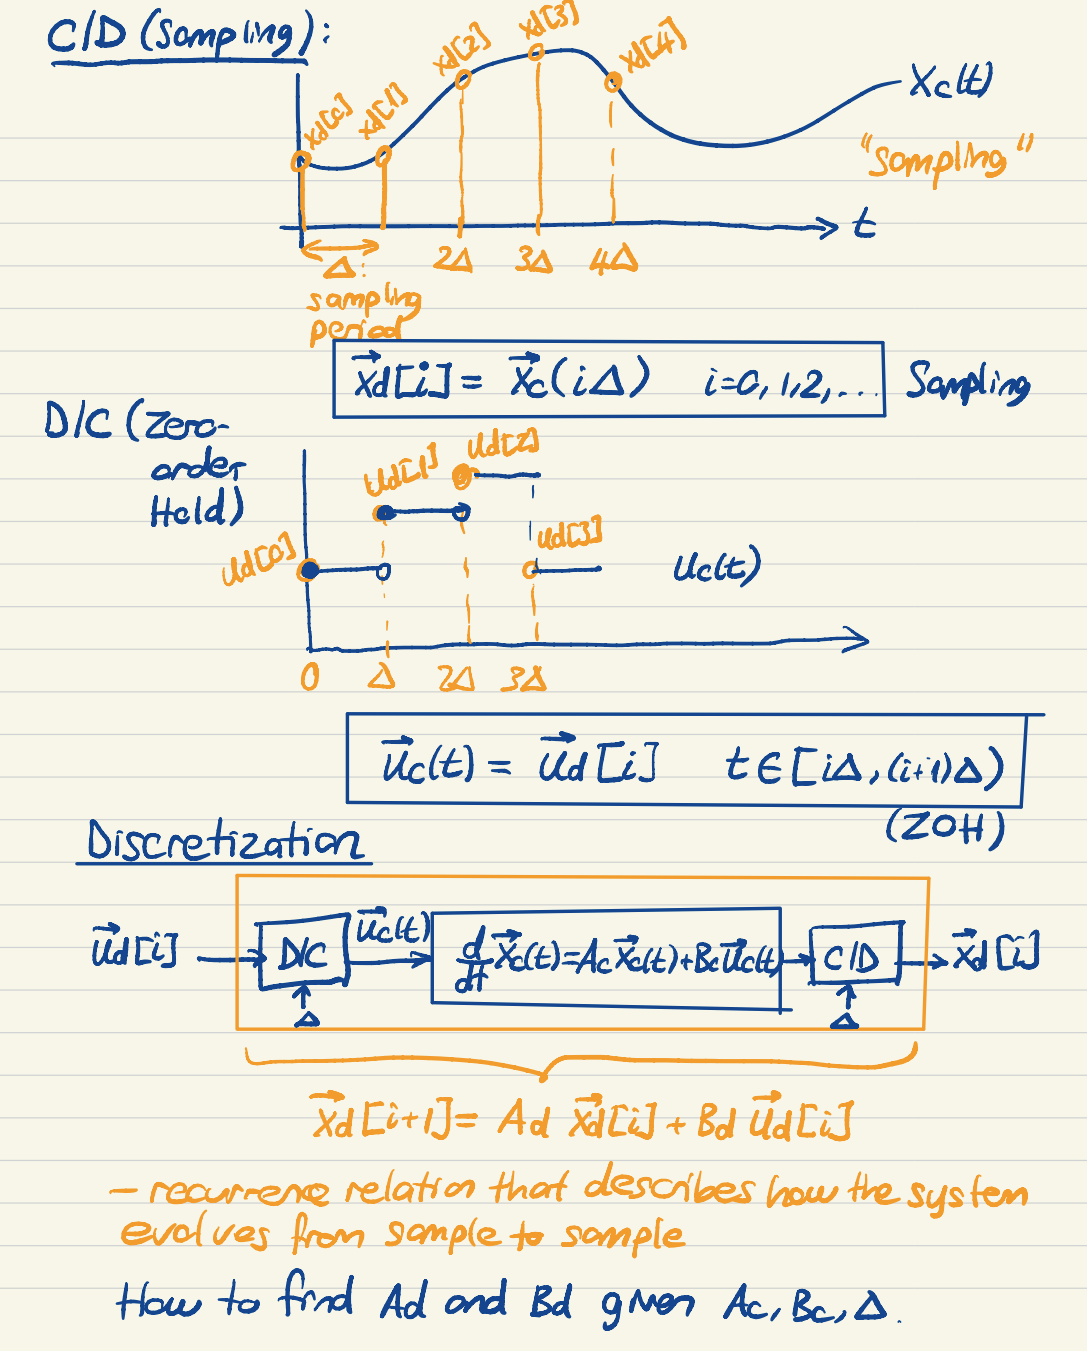 C/D (Sampling):
xd[0] xd[1] xd[2] xd[3] xd[4]
Xc(t)
"Sampling"
t
Δ: 2Δ 3Δ 4Δ
sampling
period
x⃗d[i] = x⃗c(iΔ) i=0,1,2,... Sampling
D/C (Zero-
order
Hold)
ud[0] ud[1] ud[2] ud[3]
uc(t)
0 Δ 2Δ 3Δ
u⃗c(t) = u⃗d[i] t∈[iΔ,(i+1)Δ)
(ZOH)
Discretization
u⃗d[i] D/C u⃗c(t) d/dt x⃗c(t)=Ac x⃗c(t)+Bc u⃗c(t) C/D x⃗d[i]
Δ Δ
x⃗d[i+1]= Ad x⃗d[i] + Bd u⃗d[i]
- recurrence relation that describes how the system
evolves from sample to sample
How to find Ad and Bd given Ac, Bc, Δ.